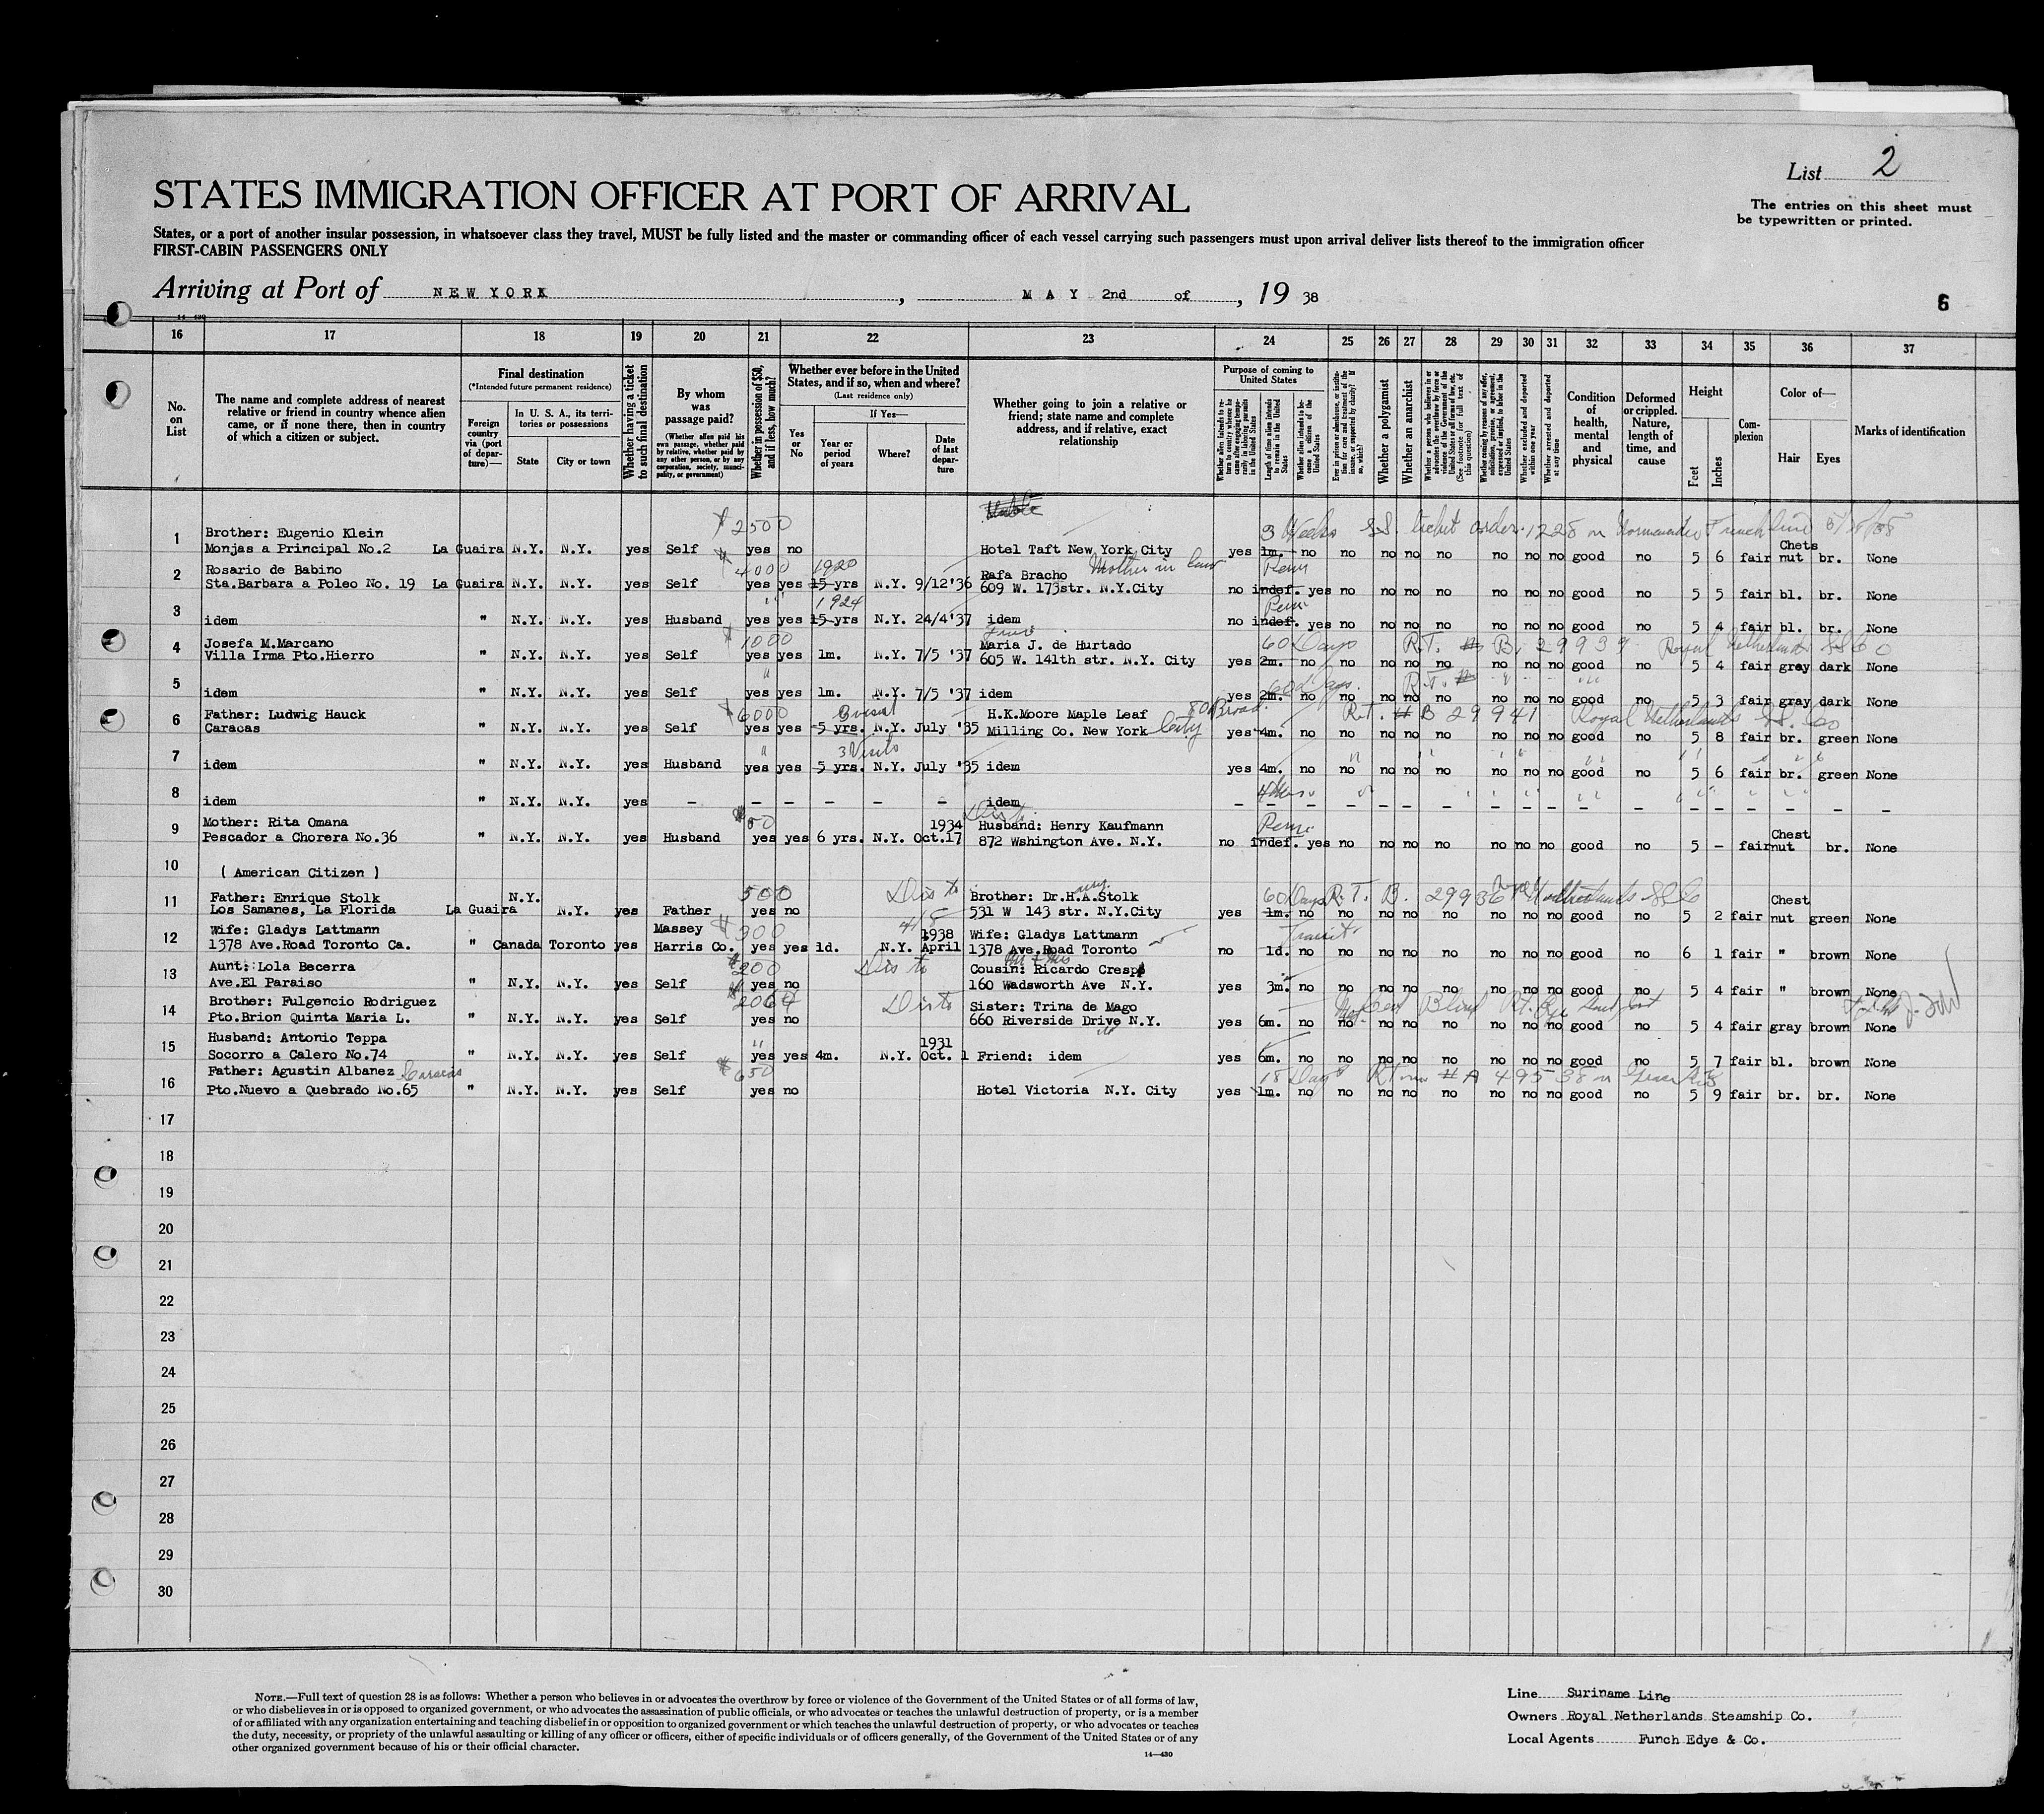 List 2
The entries on this sheet must
be typewritten or printed.
STATES IMMIGRATION OFFICER AT PORT OF ARRIVAL
States, or a port of another insular possession, in whatsoever class they travel, MUST be fully listed and the master or commanding officer of each vessel carrying such passengers must upon arrival deliver lists thereof to the immigration officer
FIRST-CABIN PASSENGERS ONLY
Arriving at Port of NEW YORK , MAY 2nd of , 19 38
6
14-430
16 17 18 19 20 21 22 23 24 25 26 27 28 29 30 31 32 33 34 35 36 37
No. on List
The name and complete address of nearest relative or friend in country whence alien came, or if none there, then in country of which a citizen or subject.
Final destination
(*Intended future permanent residence)
Foreign country via (port of departure)—
In U. S. A., its territories or possessions
State
City or town
Whether having a ticket to such final destination
By whom was passage paid?
(Whether alien paid his own passage, whether paid by relative, whether paid by any other person, or by any corporation, society, municipality, or government)
Whether in possession of $50, and if less, how much?
Whether ever before in the United States, and if so, when and where?
(Last residence only)
Yes or No
If Yes—
Year or period of years
Where?
Date of last departure
Whether going to join a relative or friend; state name and complete address, and if relative, exact relationship
Purpose of coming to United States
Length of time alien intends to remain in the United States
Whether alien intends to become a citizen of the United States
Whether a polygamist
Whether an anarchist
Whether excluded and deported within one year
Whether arrested and deported at any time
Condition of health, mental and physical
Deformed or crippled. Nature, length of time, and cause
Height
Feet
Inches
Complexion
Color of—
Hair
Eyes
Marks of identification
$2500 3 Weeks S.S. ticket order 1228 on Normandie French Line
1 Brother: Eugenio Klein
Monjas a Principal No.2 La Guaira N.Y. N.Y. yes Self yes no Hotel Taft New York City yes 1m. no no no no no no no no good no 5 6 fair Chets nut br. None
4000 1920 Mother in law Perm
2 Rosario de Babino Rafa Bracho
Sta.Barbara a Poleo No. 19 La Guaira N.Y. N.Y. yes Self yes yes 15 yrs N.Y. 9/12'36 609 W. 173str. N.Y.City no indef. yes no no no no no no no good no 5 5 fair bl. br. None
" 1924 Perm
3 idem " N.Y. N.Y. yes Husband yes yes 15 yrs N.Y. 24/4'37 idem no indef. yes no no no no no no no good no 5 4 fair bl. br. None
$1000 60 Days R.T. # B. 29939 Royal Netherlands SS Co
4 Josefa M.Marcano Maria J. de Hurtado
Villa Irma Pto.Hierro " N.Y. N.Y. yes Self yes yes 1m. N.Y. 7/5 '37 605 W. 141th str. N.Y. City yes 2m. no no no no no no no no good no 5 4 fair gray dark None
" 60 days. R.T. #
5 idem " N.Y. N.Y. yes Self yes yes 1m. N.Y. 7/5 '37 idem yes 2m. no no no no no no no no good no 5 3 fair gray dark None
$6000 80 Broad. R.T. # B 29941 Royal Netherlands SS. Co
6 Father: Ludwig Hauck H.K.Moore Maple Leaf
Caracas " N.Y. N.Y. yes Self yes yes 5 yrs. N.Y. July '35 Milling Co. New York City yes 4m. no no no no no no no no good no 5 8 fair br. green None
" 3 Visits
7 idem " N.Y. N.Y. yes Husband yes yes 5 yrs. N.Y. July '35 idem yes 4m. no no no no no no no no good no 5 6 fair br. green None
8 idem " N.Y. N.Y. yes – – – – – – idem – – – – – – – – – – – – – – – – – –
$50 Perm.
9 Mother: Rita Omana 1934 Husband: Henry Kaufmann
Pescador a Chorera No.36 " N.Y. N.Y. yes Husband yes yes 6 yrs. N.Y. Oct.17 872 Wshington Ave. N.Y. no indef. yes no no no no no no no good no 5 – fair Chest nut br. None
10 ( American Citizen )
500 60 Days R.T. B. 29936 Netherlands SS Co
11 Father: Enrique Stolk N.Y. Brother: Dr.H.A.Stolk
Los Samanes, La Florida La Guaira N.Y. yes Father yes no 531 W 143 str. N.Y.City yes 1m. no no no no no no no no good no 5 2 fair Chest nut green None
$300 4/8 Transit
12 Wife: Gladys Lattmann Massey 1938 Wife: Gladys Lattmann
1378 Ave.Road Toronto Ca. " Canada Toronto yes Harris Co. yes yes 1d. N.Y. April 1378 Ave.Road Toronto no 1d. no no no no no no no no good no 6 1 fair " brown None
$200
13 Aunt: Lola Becerra Cousin: Ricardo Crespo
Ave.El Paraiso " N.Y. N.Y. yes Self yes no 160 Wadsworth Ave N.Y. yes 3m. no no no no no no no no good no 5 4 fair " brown None
$2064 Med Cert Blind Rt. Eye
14 Brother: Fulgencio Rodriguez Sister: Trina de Mago
Pto.Brion Quinta Maria L. " N.Y. N.Y. yes Self yes no 660 Riverside Drive N.Y. yes 6m. no no no no no no no no good no 5 4 fair gray brown None
"
15 Husband: Antonio Teppa 1931
Socorro a Calero No.74 " N.Y. N.Y. yes Self yes yes 4m. N.Y. Oct. 1 Friend: idem yes 6m. no no no no no no no no good no 5 7 fair bl. brown None
$650 18 Days # A 49538 on Grace
16 Father: Agustin Albanez Caracas
Pto.Nuevo a Quebrado No.65 " N.Y. N.Y. yes Self yes no Hotel Victoria N.Y. City yes 1m. no no no no no no no no good no 5 9 fair br. br. None
17
18
19
20
21
22
23
24
25
26
27
28
29
30
NOTE.—Full text of question 28 is as follows: Whether a person who believes in or advocates the overthrow by force or violence of the Government of the United States or of all forms of law,
or who disbelieves in or is opposed to organized government, or who advocates the assassination of public officials, or who advocates or teaches the unlawful destruction of property, or is a member
of or affiliated with any organization entertaining and teaching disbelief in or opposition to organized government or which teaches the unlawful destruction of property, or who advocates or teaches
the duty, necessity, or propriety of the unlawful assaulting or killing of any officer or officers, either of specific individuals or of officers generally, of the Government of the United States or of any
other organized government because of his or their official character.
14—430
Line Suriname Line
Owners Royal Netherlands Steamship Co.
Local Agents Funch Edye & Co.